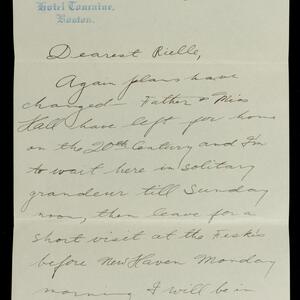 Hotel Touraine,
Boston.
Dearest Rielle,
Again plans have
changed - Father & Miss
Hall have left for home
on the 20th Century and I'm
to wait here in solitary
grandeur till Sunday
noon, then leave for a
short visit at the
before New Haven Monday
morning I will be in